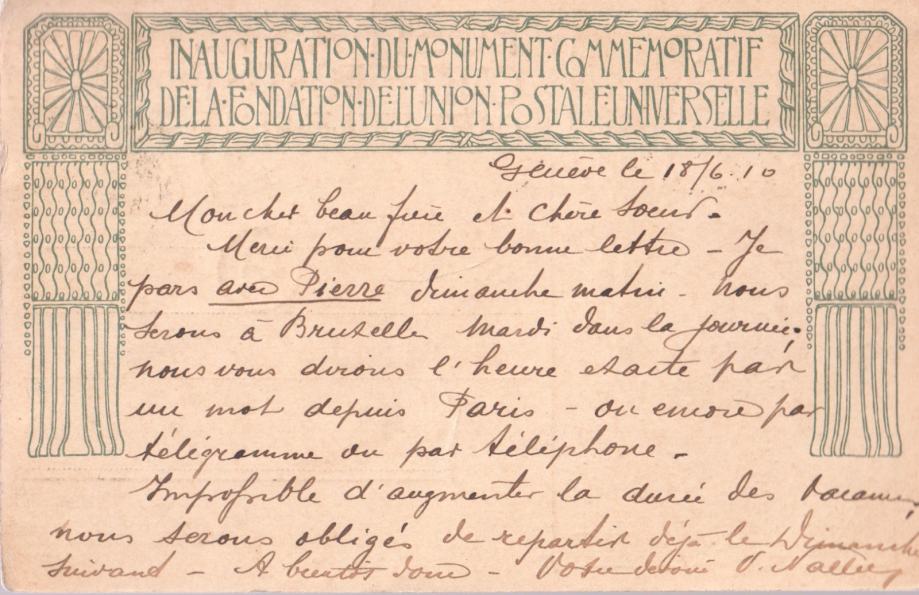 INAUGURATION·DU·MONUMENT·COMMEMORATIF
DE·LA·FONDATION·DE·L'UNION·POSTALE·UNIVERSELLE
Genève le 18/6.10
Mon cher beau frère et chère soeur.
Merci pour votre bonne lettre – Je
pars avec Pierre dimanche matin. nous
serons à Bruxelle mardi dans la journée.
nous vous dirons l'heure exacte par
un mot depuis Paris – ou encore par
télégramme ou par téléphone.
Impossible d'augmenter la durée des vacances,
nous serons obligés de repartir déjà le Dimanche
suivant – A bientôt donc – Votre dévoué